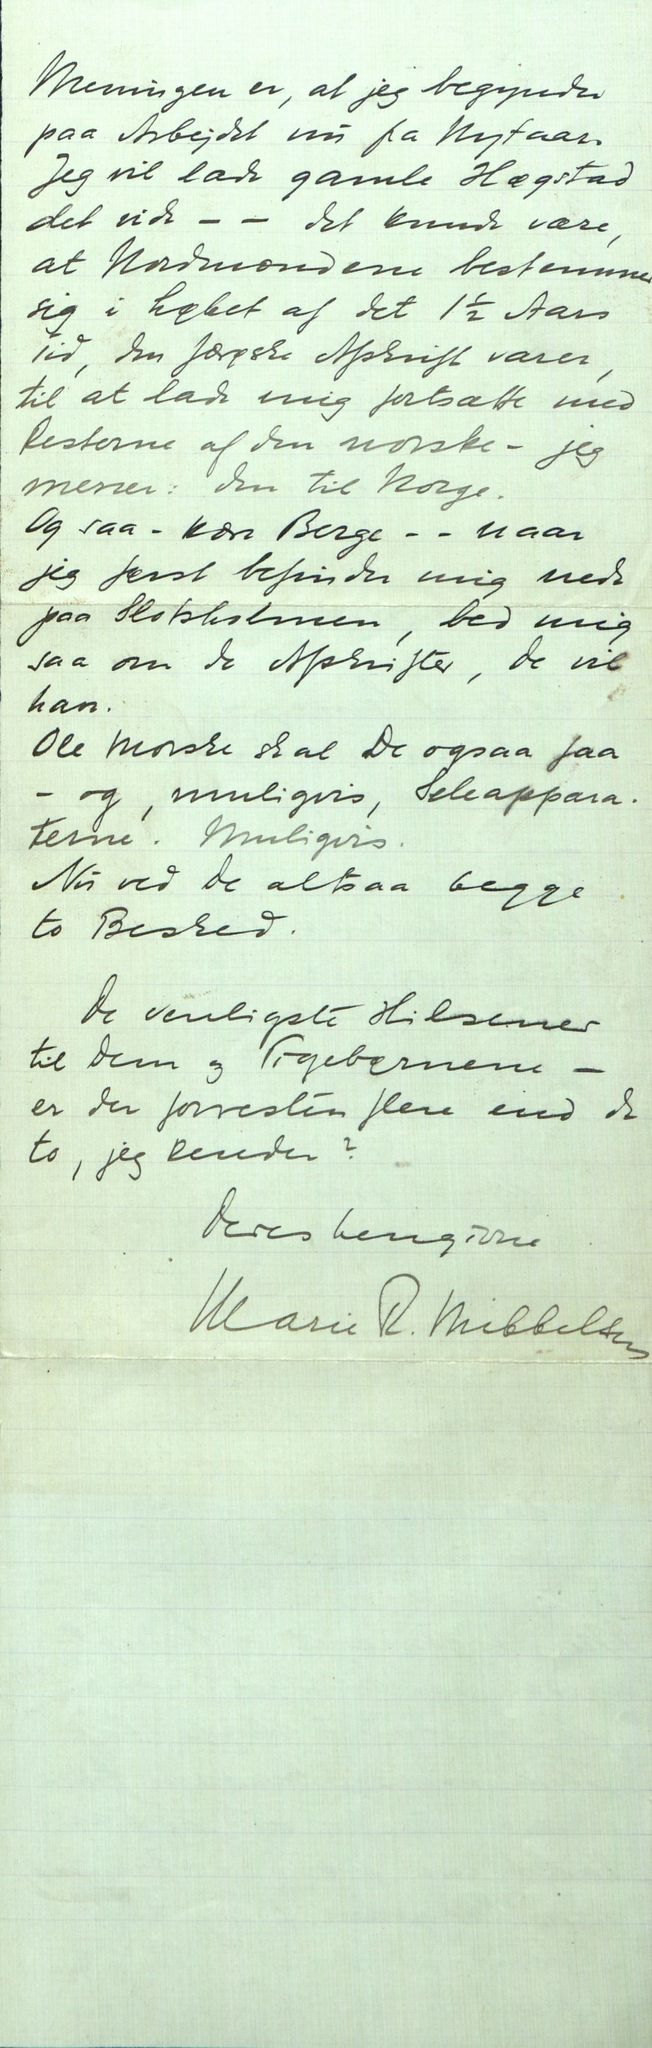 Meningen er, at jeg begynder
paa Arbejdet nu fra Nytaar.
Jeg vil lade gamle Hægstad
det vide - - det kunde være,
at Nordmændene bestemmer
sig i Løbet af det 1½ Aars
Tid, den færøske Afskrift varer,
til at lade mig fortsætte med
Resterne af den norske - jeg
mener: den til Norge.
Og saa - kære Berge - - naar
jeg først befinder mig nede
paa Slotsholmen, bed mig
saa om de Afskrifter, De vil
hav.
Ole Morske skal De ogsaa faa
- og, muligvis, Seleappara-
terne. Muligvis.
Nu ved De altsaa begge
to Besked.
De venligste Hilsener
til Dem og Pigebørnene -
er der forresten flere end de
to, jeg kender?
Deres hengivne
Marie R. Mikkelsen